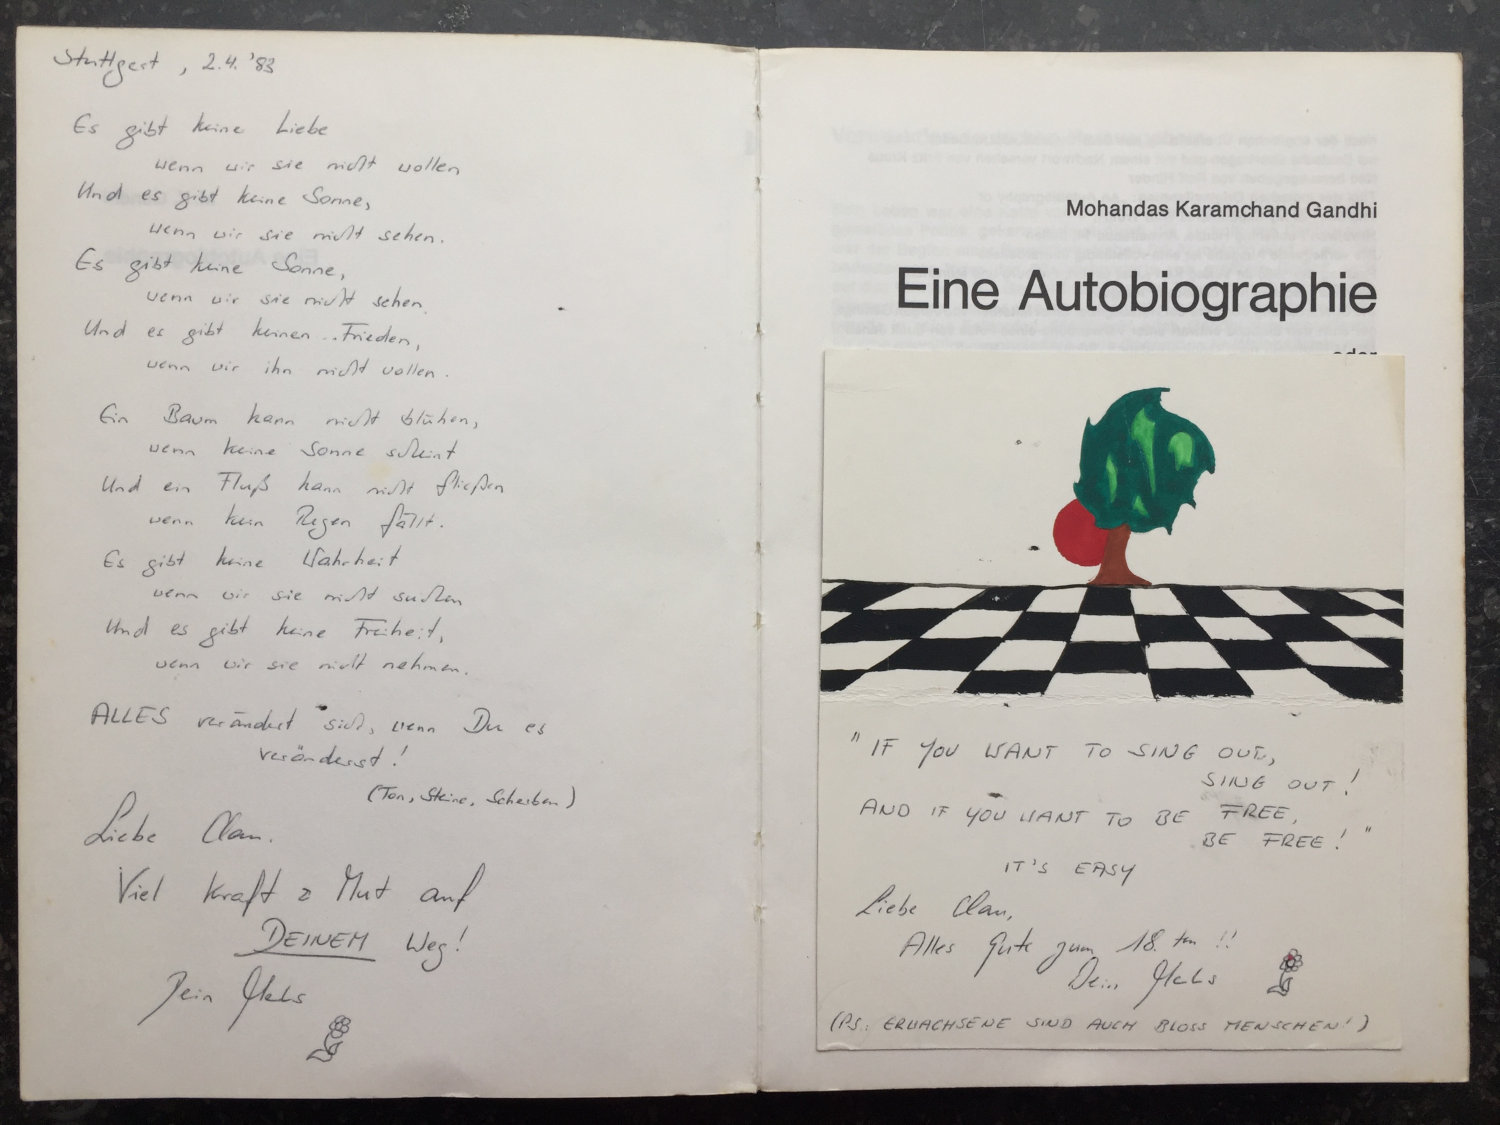 Stuttgart, 2.4. '83
Es gibt keine Liebe
wenn wir sie nicht wollen
Und es gibt keine Sonne,
wenn wir sie nicht sehen.
Es gibt keine Sonne,
wenn wir sie nicht sehen.
Und es gibt keinen Frieden,
wenn wir ihn nicht wollen.
Ein Baum kann nicht blühen,
wenn keine Sonne scheint
Und ein Fluß kann nicht fließen
wenn kein Regen fällt.
Es gibt keine Wahrheit
wenn wir sie nicht suchen
Und es gibt keine Freiheit,
wenn wir sie nicht nehmen.
ALLES verändert sich, wenn Du es
veränderst!
(Ton, Steine, Scherben)
Liebe
Viel Kraft & Mut auf
DEINEM Weg!
Dein
Mohandas Karamchand Gandhi
Eine Autobiographie
oder
"IF YOU WANT TO SING OUT,
SING OUT!
AND IF YOU WANT TO BE FREE,
BE FREE!"
IT'S EASY
Liebe
Alles Gute zum 18. ten !!
Dein
(PS. ERWACHSENE SIND AUCH BLOSS MENSCHEN!)